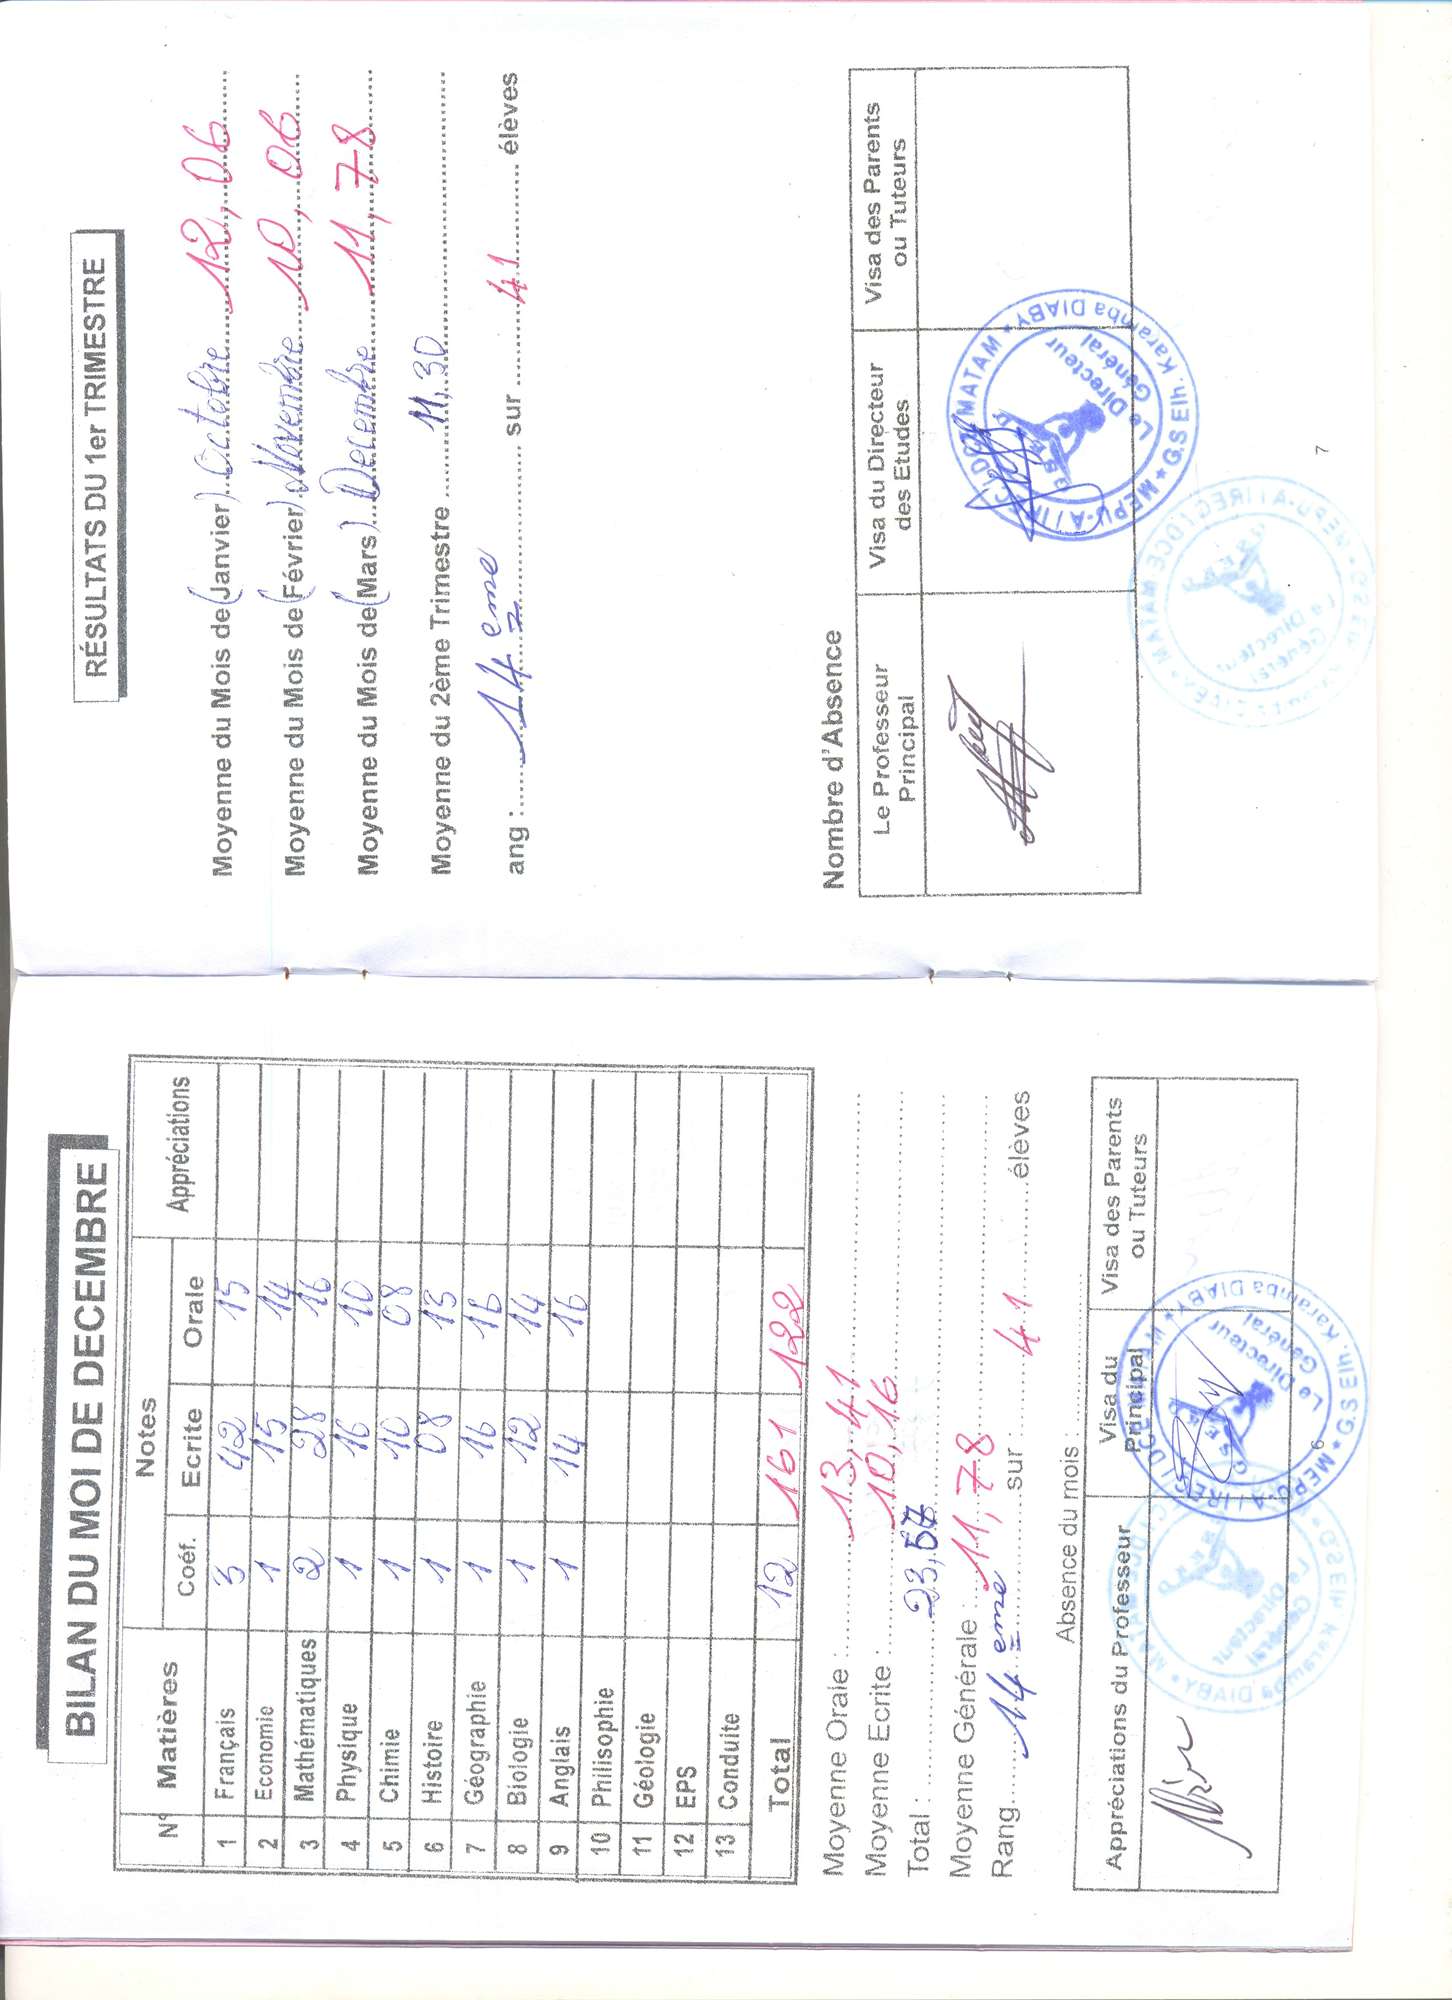 BILAN DU MOI DE DECEMBRE
N° Matières Notes Appréciations
Coéf. Ecrite Orale
1 Français 3 42 15
2 Economie 1 15 14
3 Mathématiques 2 28 16
4 Physique 1 16 10
5 Chimie 1 10 08
6 Histoire 1 08 13
7 Géographie 1 16 16
8 Biologie 1 12 14
9 Anglais 1 14 16
10 Philisophie
11 Géologie
12 EPS
13 Conduite
Total 12 161 122
Moyenne Orale : 13,41
Moyenne Ecrite : 10,16
Total : 23,57
Moyenne Générale : 11,78
Rang 14 eme sur 41 élèves
Absence du mois :
Appréciations du Professeur Visa du Principal Visa des Parents ou Tuteurs
MEPU-A / IREC / DCE MATAM
G.S Elh. Karamba DIABY
Le Directeur Général
6
RÉSULTATS DU 1er TRIMESTRE
Moyenne du Mois de (Janvier) Octobre 12,06
Moyenne du Mois de (Février) Novembre 10,06
Moyenne du Mois de (Mars) Decembre 11,78
Moyenne du 2ème Trimestre 11,30
ang : 14 eme sur 41 élèves
Nombre d'Absence
Le Professeur Principal Visa du Directeur des Etudes Visa des Parents ou Tuteurs
MEPU-A / IREC / DCE MATAM
G.S Elh. Karamba DIABY
Le Directeur Général
7